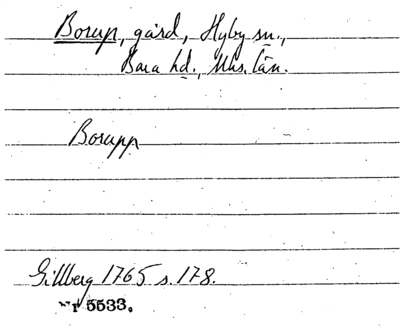 Borup, gård, Hyby sn.,
Bara hd., Mhs. län.
Borupp
Gillberg 1765 s. 178.
5533.